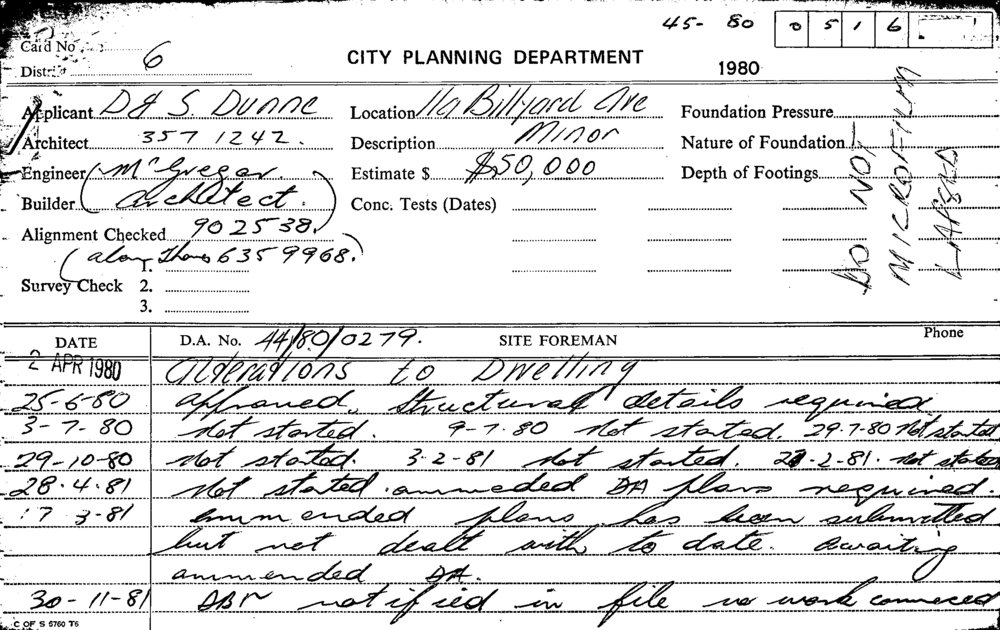 45- 80 0 5 1 6
Card No
District 6
CITY PLANNING DEPARTMENT
1980
Applicant D & S. Dunne
Location 11a Billyard Ave
Foundation Pressure
Architect 357 1242.
Description Minor
Nature of Foundation
Engineer (McGregor
Estimate $ $50,000
Depth of Footings
Builder architect.
Conc. Tests (Dates)
Alignment Checked 902538.)
(alan 6359968.)
1.
Survey Check 2.
3.
DO NOT
MICROFILM
LAPSED
DATE
D.A. No. 44/80/0279.
SITE FOREMAN
Phone
2 APR 1980 Alterations to Dwelling
25-6-80 approved, Structural details required
3-7-80 Not started. 9-7-80 Not started. 29-7-80 Not started
29-10-80 Not started. 3-2-81 Not started. 2-81. Not started
28.4.81 Not started. ammeded DA plans required.
17 3-81 emmended plans has been submitted
but not dealt with to date. awaiting
ammended DA.
30-11-81 notified in file no work commeced
C OF S 6760 T6